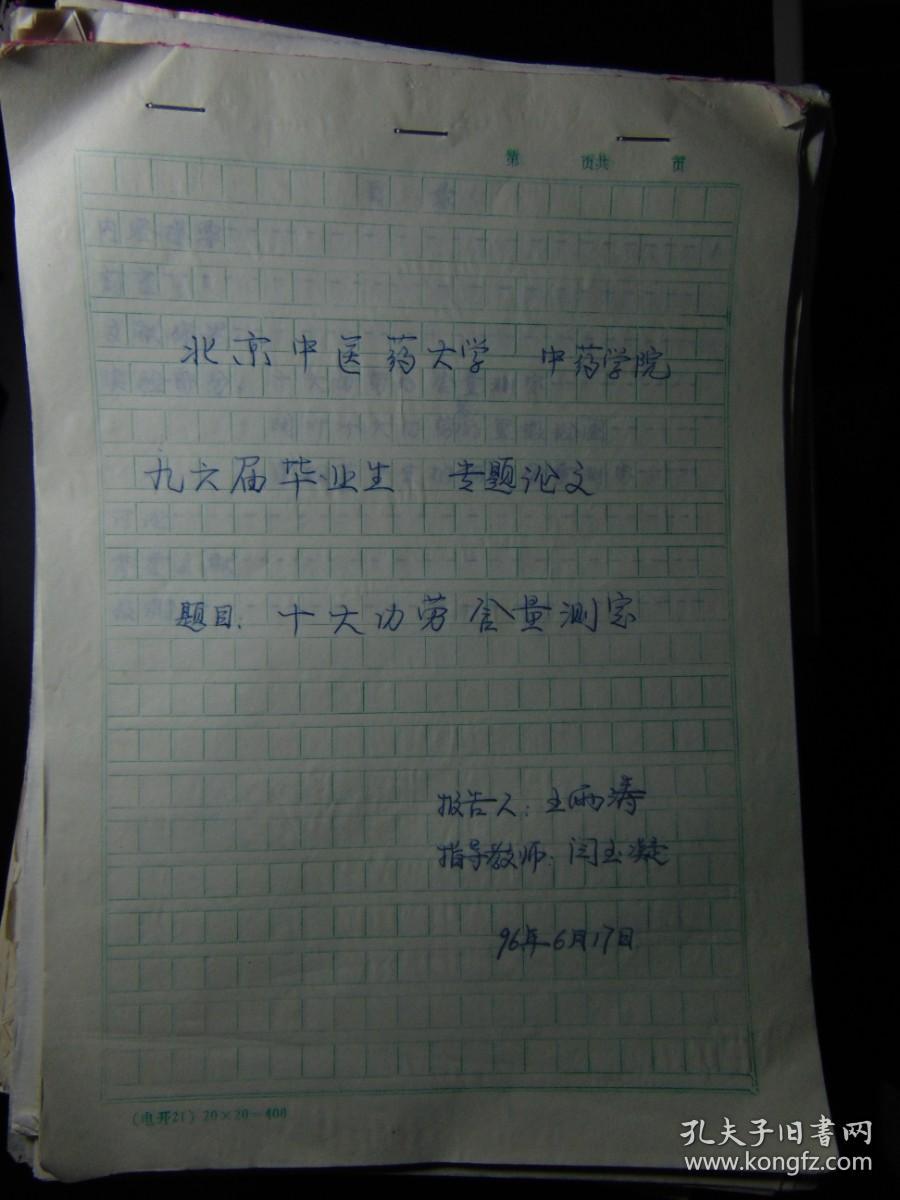 第 页共 页
北京中医药大学 中药学院
九六届毕业生 专题论文
题目: 十大功劳含量测定
报告人: 王雨涛
指导教师: 闫玉凝
96年6月17日
(电开21) 20×20=400
孔夫子旧书网
www.kongfz.com